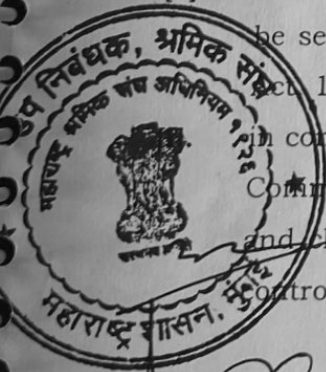 उप निबंधक, श्रमिक संघ
महाराष्ट्र श्रमिक संघ अधिनियम १९२६
सत्यमेव जयते
महाराष्ट्र शासन, मुंबई
be se
ct, 1
in co
Com
and ch
contro